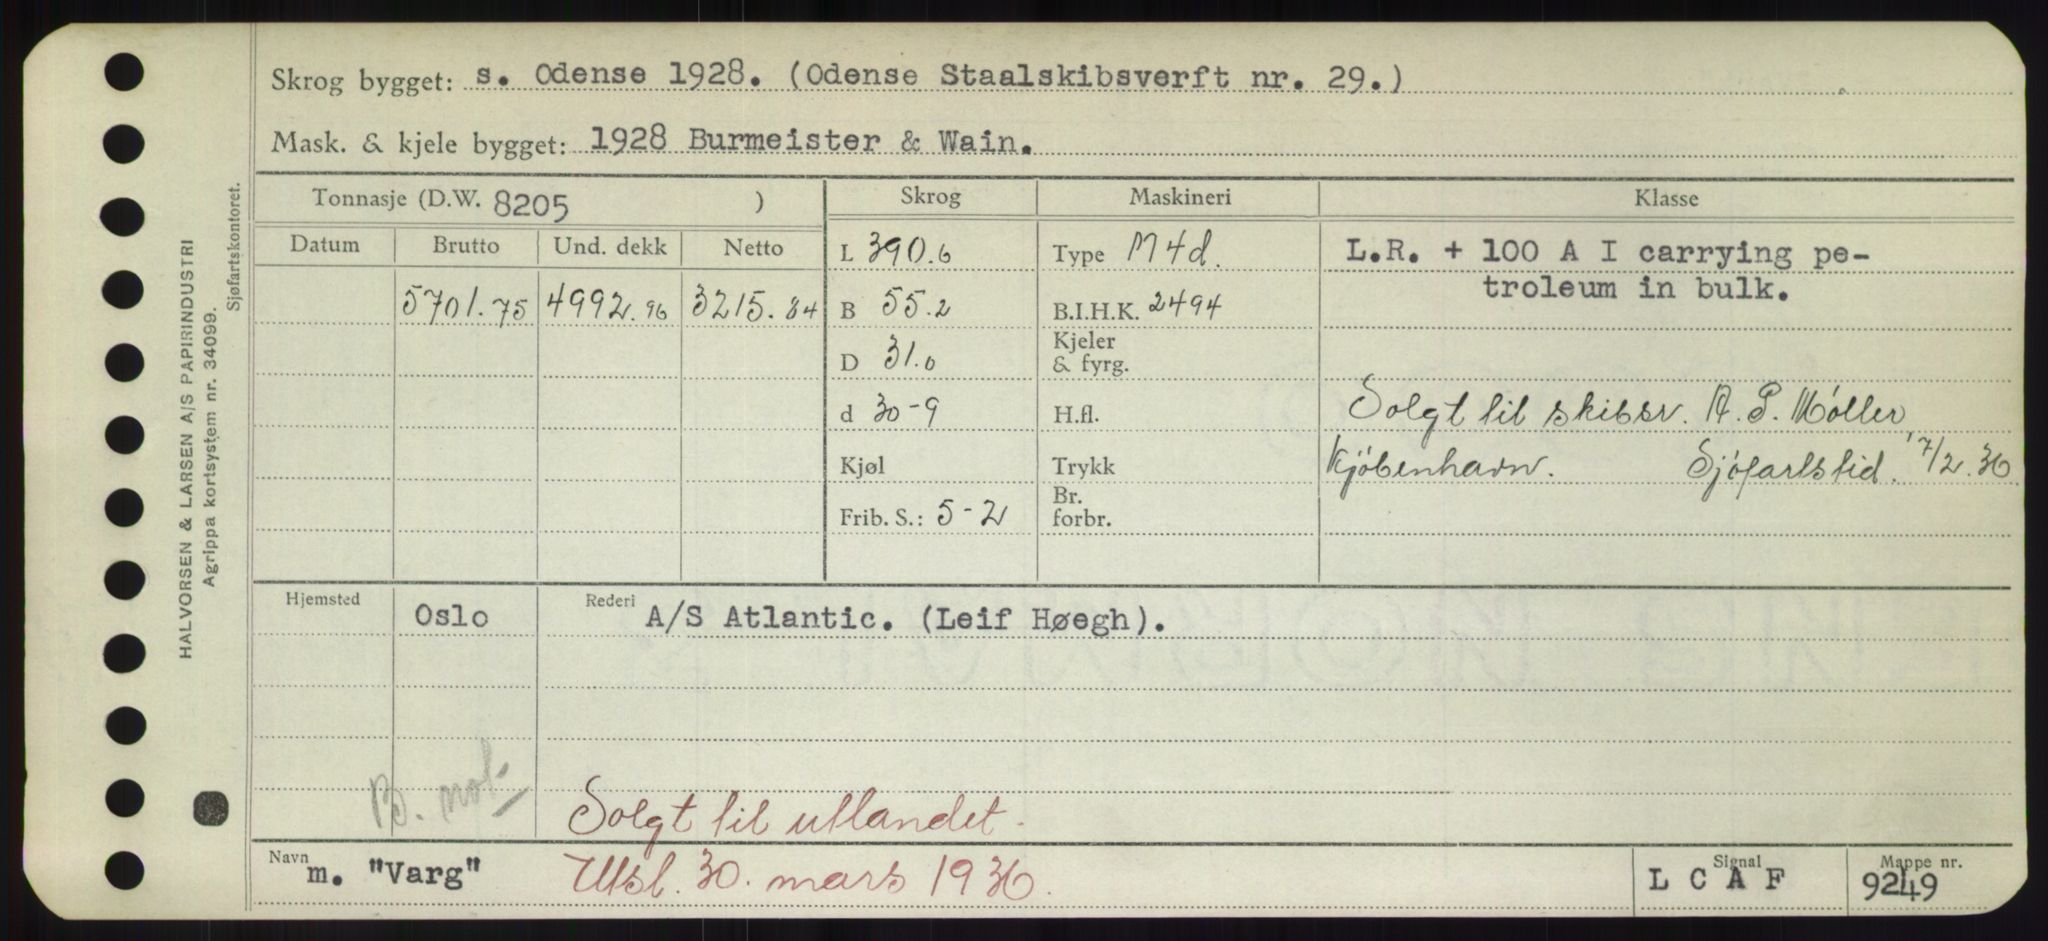 Skrog bygget: s. Odense 1928. (Odense Staalskibsverft nr. 29.)
Mask. & kjele bygget: 1928 Burmeister & Wain.
Tonnasje (D.W. 8205 ) Skrog Maskineri Klasse
Datum Brutto Und. dekk Netto
5701.75 4992.96 3215.84
L 390.6
B 55.2
D 31.0
d 30-9
Kjøl
Frib. S.: 5-2
Type M4d.
B.I.H.K. 2494
Kjeler
& fyrg.
H.fl.
Trykk
Br.
forbr.
L.R. + 100 A I carrying pe-
troleum in bulk.
Solgt til skibsr. A. P. Møller,
Kjøbenhavn. Sjøfartstid. 17/2.36
Hjemsted Oslo Rederi A/S Atlantic. (Leif Høegh).
B. not.
Solgt til utlandet.
Navn m. "Varg" Utsl. 30. mars 1936. Signal L C A F Mappe nr. 9249
HALVORSEN & LARSEN A/S PAPIRINDUSTRI
Agrippa kortsystem nr. 34099.
Sjøfartskontoret.